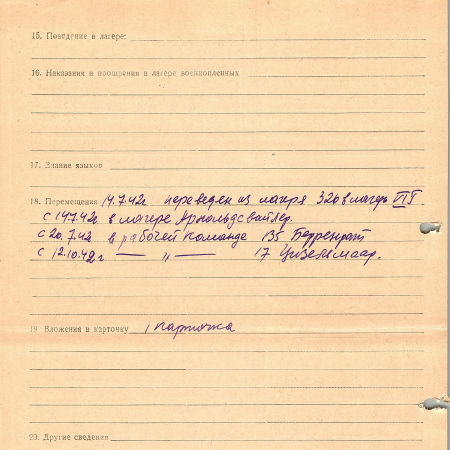 15. Поведение в лагере:
16. Наказания и поощрения в лагере военнопленных
17. Знание языков
18. Перемещения 14.7.42г. переведен из лагеря 326 в лагерь VI G.
с 14.7.42г в лагере Арнольдсвайлер.
с 20.7.42 в рабочей команде 135 Берренрат
с 12.10.42г — " — 17 Цизельмаар.
19 Вложения в карточку 1 карточка
20. Другие сведения